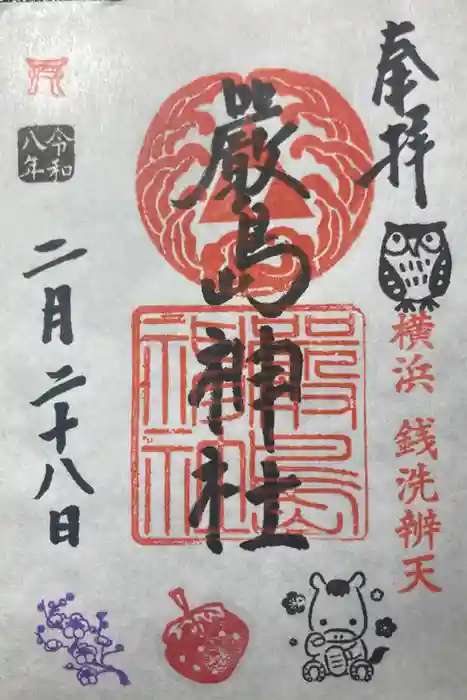 奉拝
横浜 銭洗辨天
嚴島神社
嚴島神社
令和八年
二月二十八日